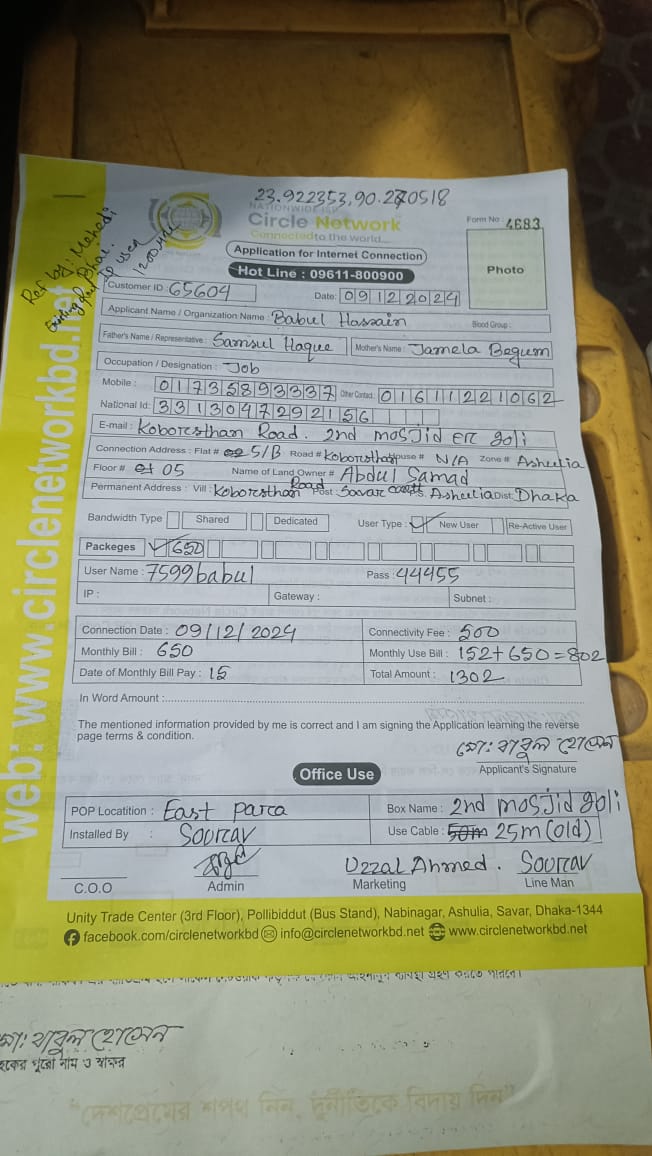 23.922353, 90.270518
NATIONWIDE ISP
Circle Network
Connected to the world...
Form No : 4683
Ref by: Mehedi Bhai.
Application for Internet Connection
Hot Line : 09611-800900
Photo
Customer ID : 65604
Date: 09122024
Applicant Name / Organization Name : Babul Hossain
Blood Group :
Father's Name / Representative : Samsul Haque
Mother's Name : Jamela Begum
Occupation / Designation : Job
Mobile : 01735893337 Other Contact : 01611221062
National Id: 3313047292156
E-mail : Koboresthan Road. 2nd mosjid er goli
Connection Address : Flat # 5/B Road # Koboresthan House # N/A Zone # Ashulia
Floor # 05 Name of Land Owner # Abdul Samad
Permanent Address : Vill : Koboresthan Road Post Savar Ashulia Dist: Dhaka
Bandwidth Type Shared Dedicated User Type : ✓ New User Re-Active User
Packeges ✓ 650
User Name : 7599babul Pass : 44455
IP : Gateway : Subnet :
Connection Date : 09/12/2024 Connectivity Fee : 500
Monthly Bill : 650 Monthly Use Bill : 152+650=802
Date of Monthly Bill Pay : 15 Total Amount : 1302
In Word Amount :
The mentioned information provided by me is correct and I am signing the Application learning the reverse
page terms & condition.
মো: বাবুল হোসেন
Applicant's Signature
Office Use
POP Locatition : East Parca Box Name : 2nd mosjid goli
Installed By : Sourav Use Cable : 50m 25m (old)
Uzzal Ahmed. Sourav
C.O.O Admin Marketing Line Man
Unity Trade Center (3rd Floor), Pollibiddut (Bus Stand), Nabinagar, Ashulia, Savar, Dhaka-1344
facebook.com/circlenetworkbd info@circlenetworkbd.net www.circlenetworkbd.net
web: www.circlenetworkbd.net
মো: বাবুল হোসেন
পুরো নাম ও স্বাক্ষর
“দেশপ্রেমের শপথ নিন, দুর্নীতিকে বিদায় দিন”